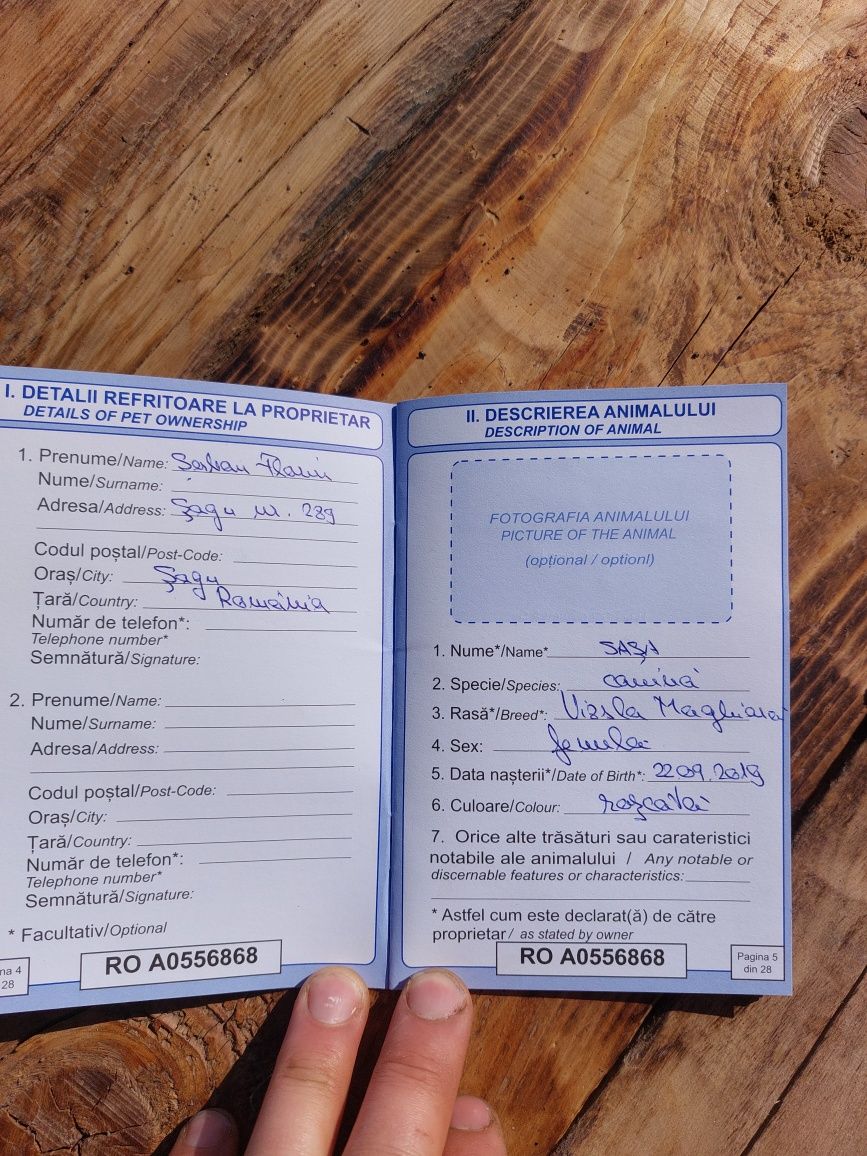 I. DETALII REFRITOARE LA PROPRIETAR
DETAILS OF PET OWNERSHIP
1. Prenume/Name: Șerban Florin
Nume/Surname:
Adresa/Address: Șagu nr. 289
Codul poștal/Post-Code:
Oraș/City: Șagu
Țară/Country: România
Număr de telefon*:
Telephone number*
Semnătură/Signature:
2. Prenume/Name:
Nume/Surname:
Adresa/Address:
Codul poștal/Post-Code:
Oraș/City:
Țară/Country:
Număr de telefon*:
Telephone number*
Semnătură/Signature:
* Facultativ/Optional
RO A0556868
na 4
28
II. DESCRIEREA ANIMALULUI
DESCRIPTION OF ANIMAL
FOTOGRAFIA ANIMALULUI
PICTURE OF THE ANIMAL
(opțional / optionl)
1. Nume*/Name* SAȘA
2. Specie/Species: canină
3. Rasă*/Breed*: Vizsla Maghiară
4. Sex: femelă
5. Data nașterii*/Date of Birth*: 22.09.2019
6. Culoare/Colour: roșcată
7. Orice alte trăsături sau carateristici
notabile ale animalului / Any notable or
discernable features or characteristics:
* Astfel cum este declarat(ă) de către
proprietar / as stated by owner
RO A0556868
Pagina 5
din 28